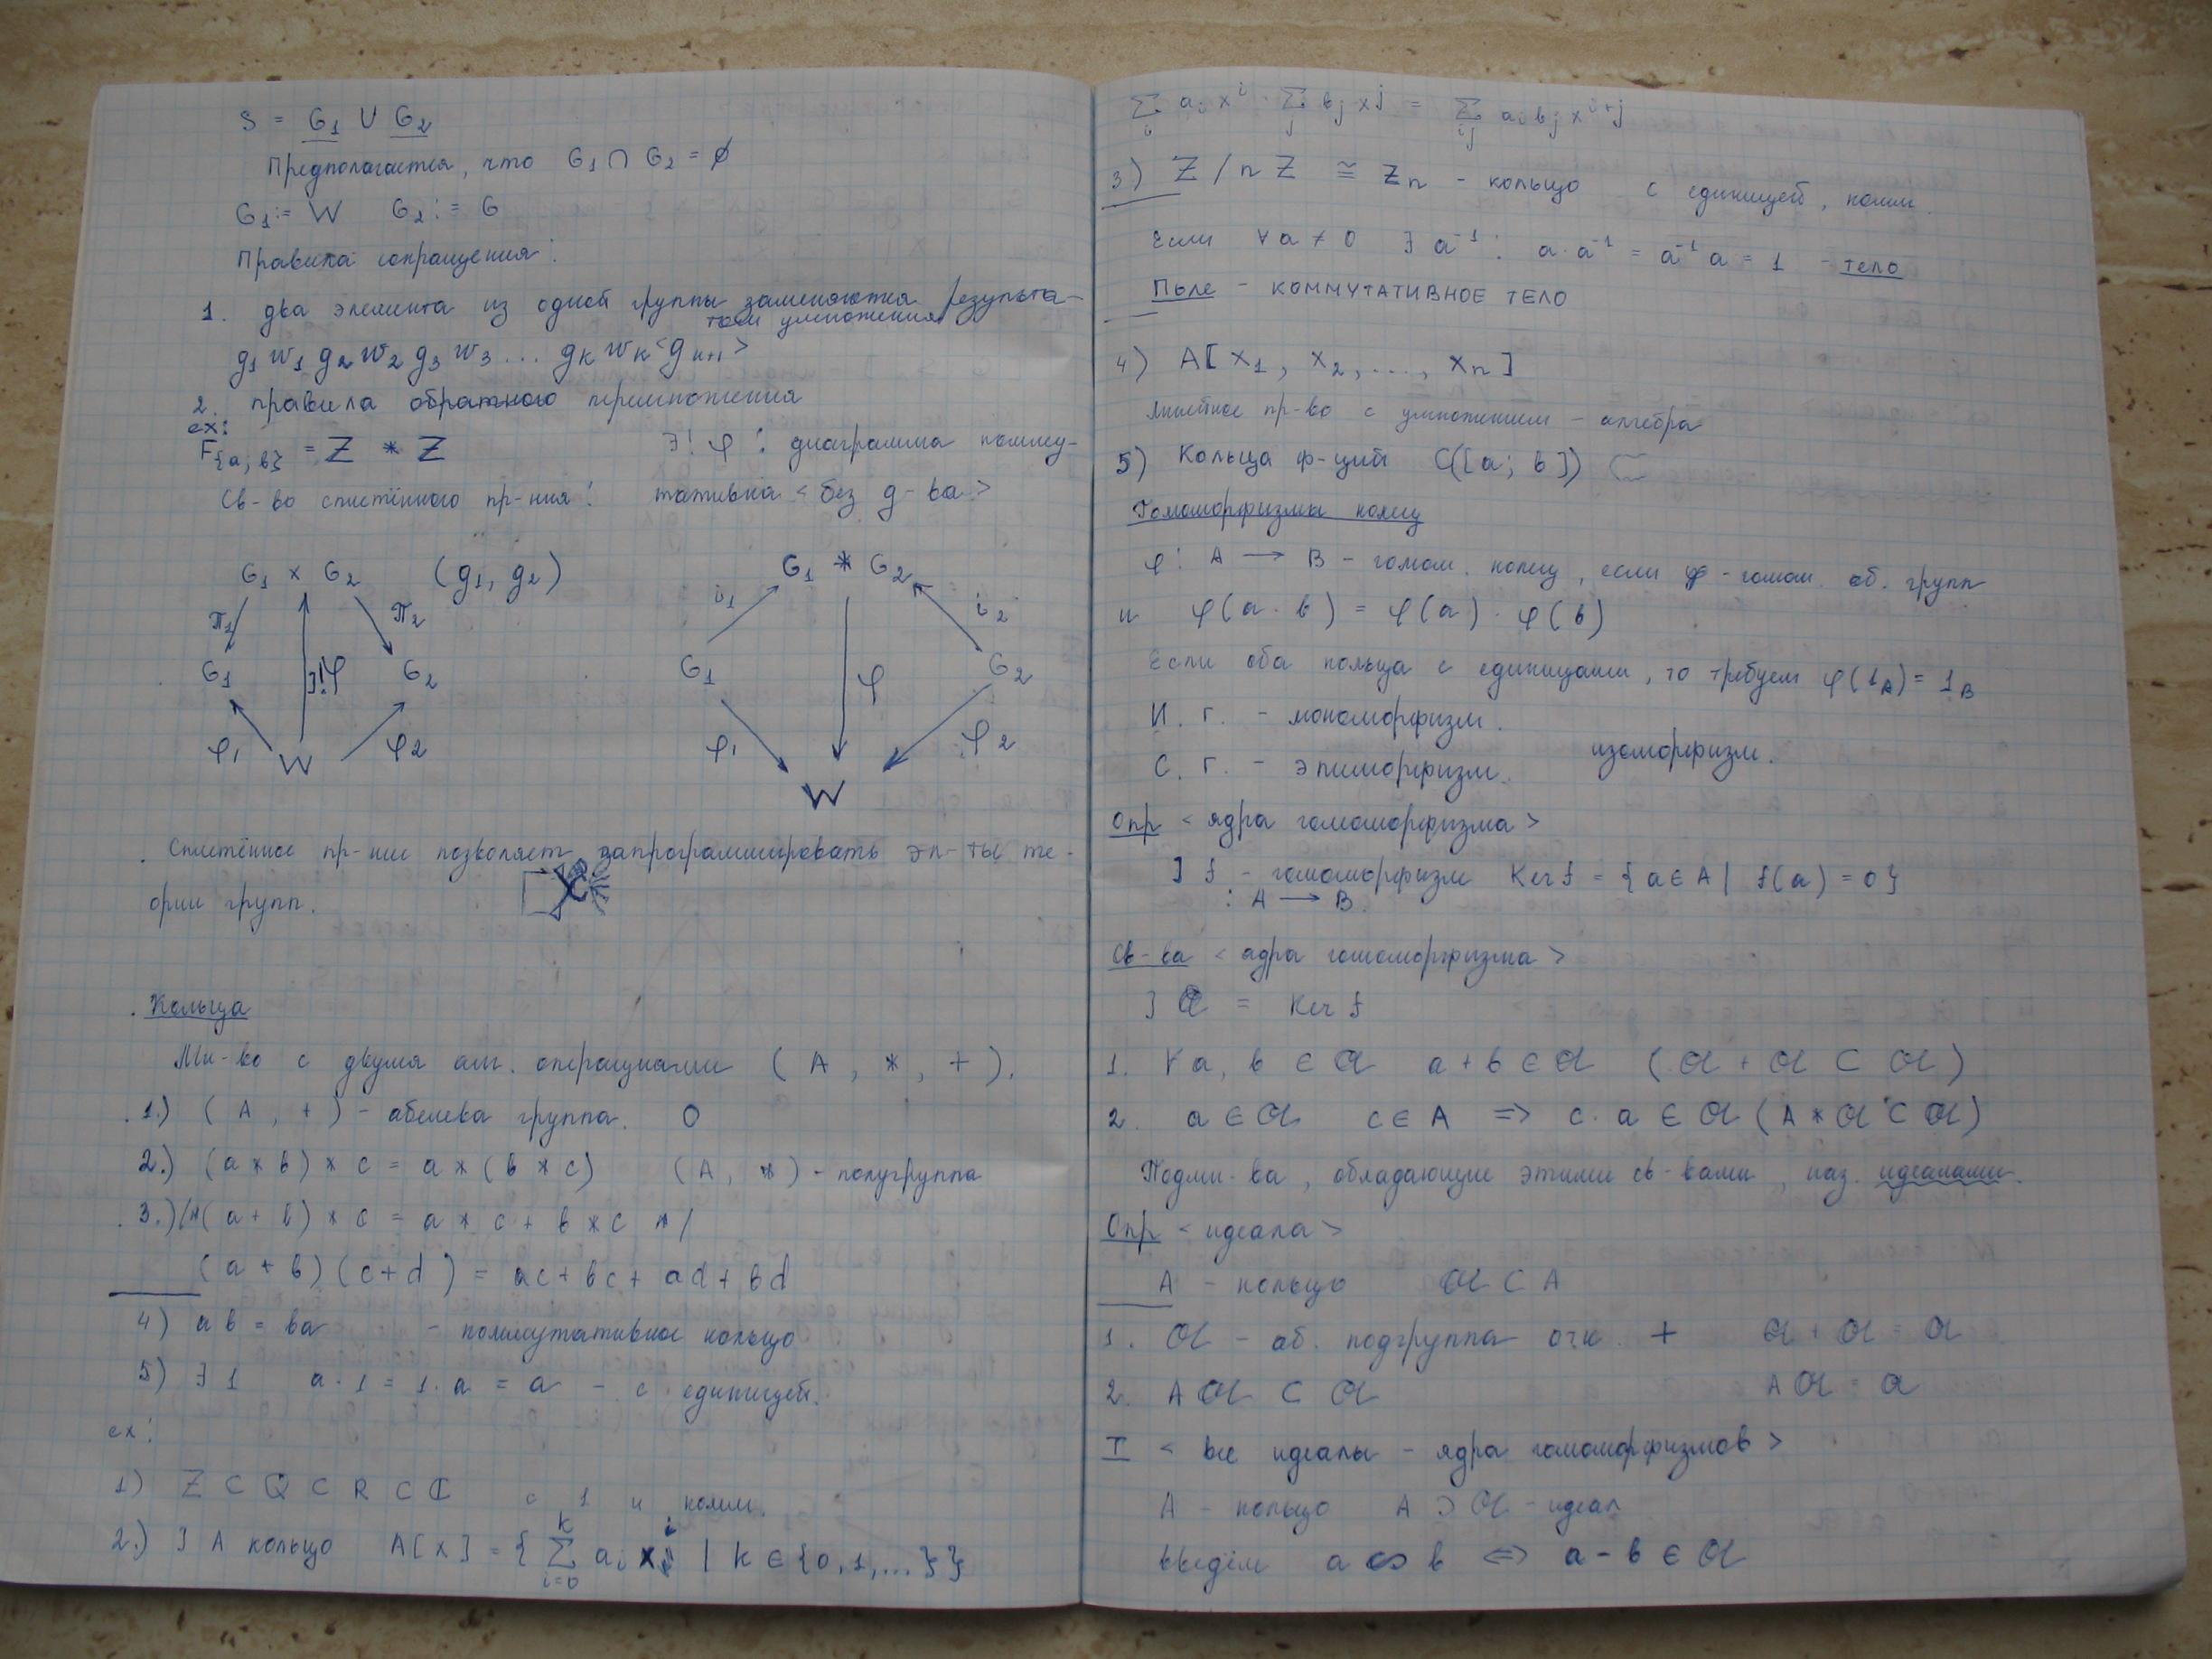 S = G₁ ∪ G₂
Предполагается, что G₁ ∩ G₂ = ∅
G₁ := W G₂ := G
Правила сокращения:
1. два элемента из одной группы заменяются результа-
том умножения
g₁ w₁ g₂ w₂ g₃ w₃ ... gₖ wₖ <gₖ₊₁>
2. правила обратного перемножения
ex:
F{a; b} = Z * Z
Св-во сплетённого пр-ния:
∃! φ : диаграмма комму-
тативна <без д-ва>
G₁ × G₂ (g₁, g₂)
π₁ π₂
G₁ ∃!φ G₂
φ₁ W φ₂
G₁ * G₂
i₁ i₂
G₁ φ G₂
φ₁ φ₂
W
Сплетённое пр-ние позволяет запрограммировать эл-ты те-
ории групп.
Кольца
Мн-во с двумя алг. операциями (A, *, +).
1.) (A, +) - абелева группа. 0
2.) (a * b) * c = a * (b * c) (A, *) - полугруппа
3.) /*(a + b) * c = a * c + b * c */
(a + b)(c + d) = ac + bc + ad + bd
4) ab = ba - коммутативное кольцо
5) ∃ 1 a · 1 = 1 · a = a - с единицей.
ex:
1) Z ⊂ Q ⊂ R ⊂ C с 1 и комм.
2.) ] A кольцо A[x] = { ∑ᵢ₌₀ᵏ aᵢ xⁱ | k ∈ {0, 1, ...}}
∑ᵢ aᵢ xⁱ · ∑ⱼ bⱼ xʲ = ∑ᵢⱼ aᵢ bⱼ xⁱ⁺ʲ
3) Z / n Z ≅ Zₙ - кольцо с единицей, комм.
Если ∀ a ≠ 0 ∃ a⁻¹ : a · a⁻¹ = a⁻¹ a = 1 - тело
Поле - КОММУТАТИВНОЕ ТЕЛО
4) A[x₁, x₂, ..., xₙ]
линейное пр-во с умножением - алгебра
5) Кольца ф-ций C([a; b])
Гомоморфизмы колец
φ : A → B - гомом. колец, если φ - гомом. аб. групп
и φ(a · b) = φ(a) · φ(b)
Если оба кольца с единицами, то требуем φ(1_A) = 1_B
И. г. - мономорфизм.
С. г. - эпиморфизм. изоморфизм.
Опр <ядра гомоморфизма>
] f - гомоморфизм Ker f = {a ∈ A | f(a) = 0}
: A → B.
Св-ва <ядра гомоморфизма>
] 𝔄 = Ker f
1. ∀ a, b ∈ 𝔄 a + b ∈ 𝔄 (𝔄 + 𝔄 ⊂ 𝔄)
2. a ∈ 𝔄 c ∈ A => c · a ∈ 𝔄 (A * 𝔄 ⊂ 𝔄)
Подмн-ва, обладающие этими св-вами, наз. идеалами.
Опр <идеала>
A - кольцо 𝔄 ⊂ A
1. 𝔄 - аб. подгруппа отн. + 𝔄 + 𝔄 = 𝔄
2. A𝔄 ⊂ 𝔄 A𝔄 = 𝔄
T <все идеалы - ядра гомоморфизмов>
A - кольцо A ⊃ 𝔄 - идеал
введём a ∽ b <=> a - b ∈ 𝔄